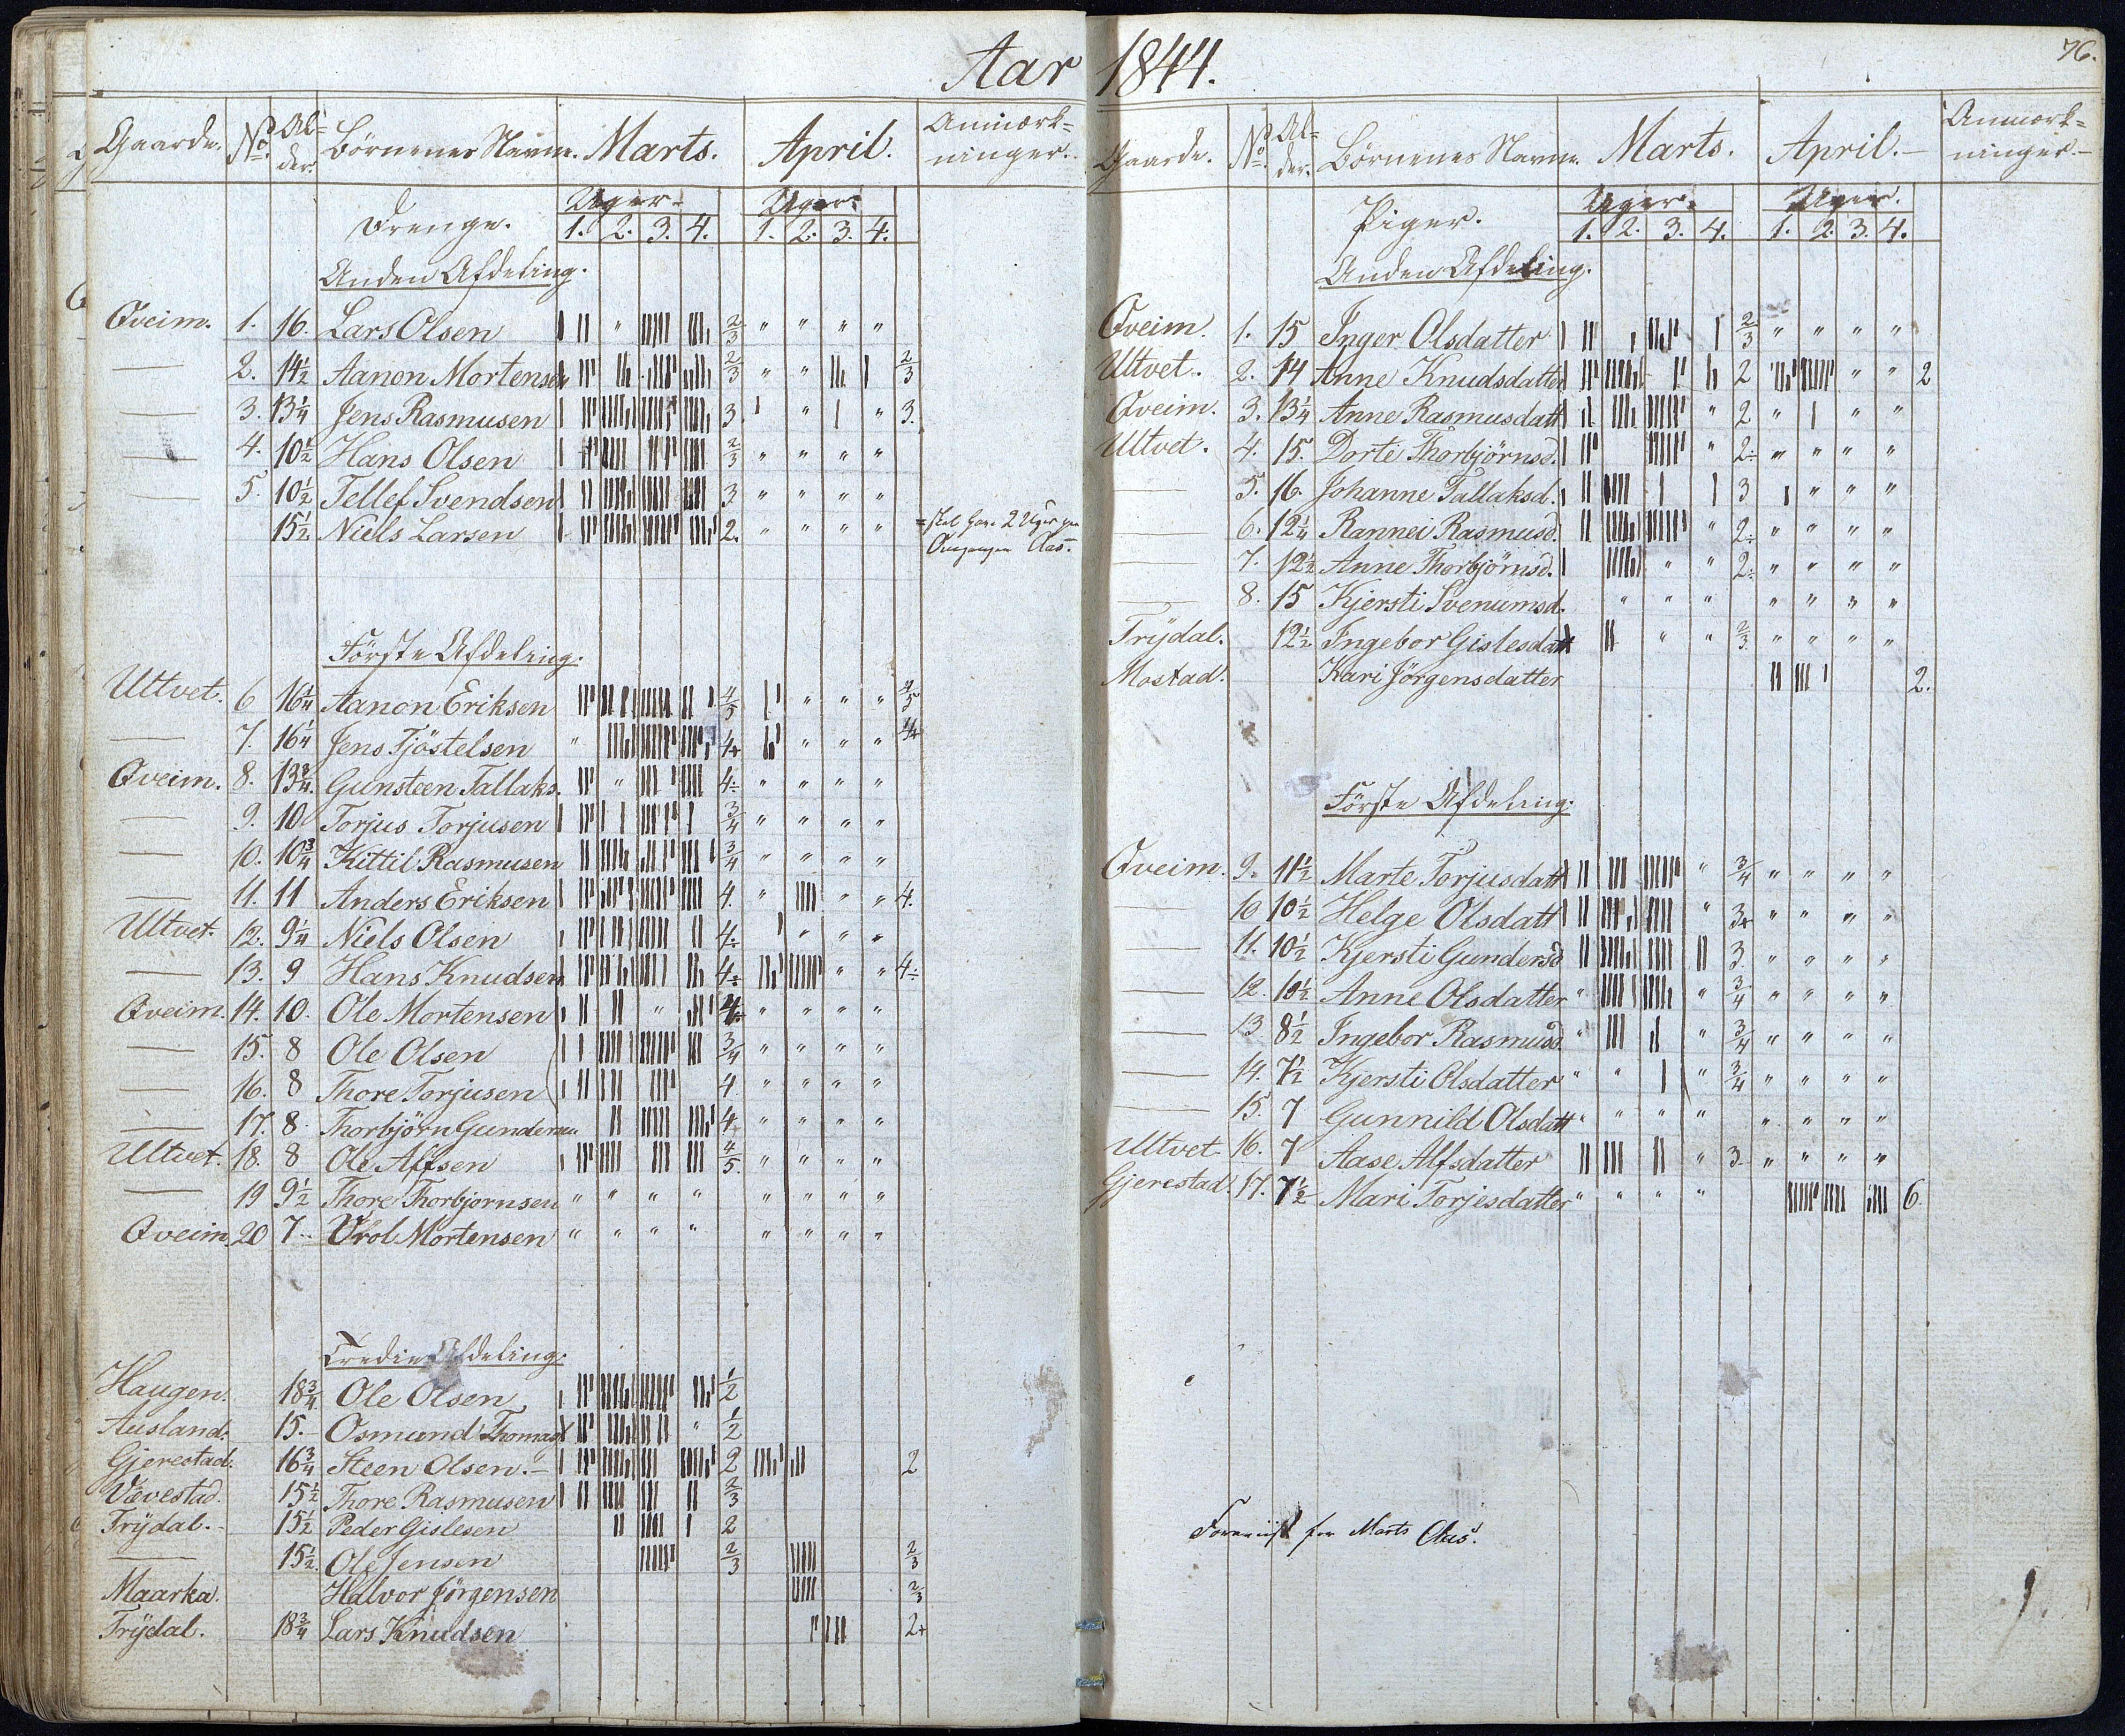 Aar 1844.
76.
Gaarde. No. Al=der. Börnenes Navne. Marts. April. Anmærk=ninger.
Drenge. Uger. Uger.
1. 2. 3. 4. 1. 2. 3. 4.
Anden Afdeling.
Qveim. 1. 16. Lars Olsen 2/3 " " " "
— 2. 14½ Aanon Mortensen 2/3 " " 2/3
— 3. 13¼ Jens Rasmusen 3. " " 3.
— 4. 10½ Hans Olsen 2/3 " " " "
— 5. 10½ Tellef Svendsen 3 " " " "
15½ Niels Larsen 2. " " " " = skal have 2 Uger
Aas.
Förste Afdeling.
Ultvet. 6 16¼ Aanon Eriksen 4/5 " " " 4/5
— 7. 16¼ Jens Tjöstelsen " 4+ " " " 4+
Qveim. 8. 13¾ Gunsteen Tallaks. " 4÷ " " " "
— 9. 10 Torjus Torjusen 3/4 " " " "
— 10. 10¾ Kittil Rasmusen 3/4 " " " "
— 11. 11 Anders Eriksen 4. " " " 4.
Ultvet. 12. 9¼ Niels Olsen 4÷ " " "
— 13. 9 Hans Knudsen 4÷ " " 4÷
Qveim. 14. 10. Ole Mortensen " 4÷ " " " "
— 15. 8 Ole Olsen 3/4 " " " "
— 16. 8 Thore Torjusen 4. " " " "
— 17. 8 Thorbjörn Gundersen 4. " " " "
Ultvet. 18. 8 Ole Alfsen 4/5. " " " "
— 19 9½ Thore Thorbjornsen " " " " " " " "
Qveim. 20 7 Vrol Mortensen " " " " " " " "
Tredie Afdeling.
Haugen. 18¾ Ole Olsen 1/2
Ausland. 15. Osmund Thomas " 1/2
Gjerestad. 16¾ Steen Olsen. 2 2
Vævestad. 15½ Thore Rasmusen 2/3
Trydal. 15½ Peder Gislesen 2
— 15½ Ole Jensen 2/3 2/3
Maarka. Halvor Jörgensen 2/3
Trydal. 18¾ Lars Knudsen 2+
Gaarde. No. Al=der. Börnenes Navne. Marts. April. Anmærk=ninger.
Piger. Uger. Uger.
1. 2. 3. 4. 1. 2. 3. 4.
Anden Afdeling.
Qveim. 1. 15 Inger Olsdatter 2/3 " " " "
Ultvet. 2. 14 Anne Knudsdatter 2 " " 2
Qveim. 3. 13¼ Anne Rasmusdatt " 2 " " "
Ultvet. 4. 15. Dorte Thorbjörnsd. " 2÷ " " " "
— 5. 16. Johanne Tallaksd. 3 " " "
— 6. 12¼ Rannei Rasmusd. " 2÷ " " " "
— 7. 12½ Anne Thorbjörnsd. " " 2÷ " " " "
— 8. 15 Kjersti Svenumsd. " " " " " " "
Trydal. 12½ Ingebor Gislesdatt " " 2/3. " " " "
Mostad. Kari Jörgensdatter 2.
Förste Afdeling.
Qveim. 9. 11½ Marte Torjusdatt " 3/4 " " " "
— 10 10½ Helge Olsdatt " 3+ " " " "
— 11. 10½ Kjersti Gundersd 3 " " " "
— 12. 10½ Anne Olsdatter " " 3/4 " " " "
— 13 8½ Ingebor Rasmusd. " " 3/4 " " " "
— 14. 7½ Kjersti Olsdatter " " " 3/4 " " " "
— 15. 7 Gunnild Olsdatt " " " " " " " "
Ultvet 16. 7 Aase Alfsdatter " 3 " " " "
Gjerestad. 17. 7½ Mari Torjesdatter " " " " 6.
Foreviist for Marts Aas.